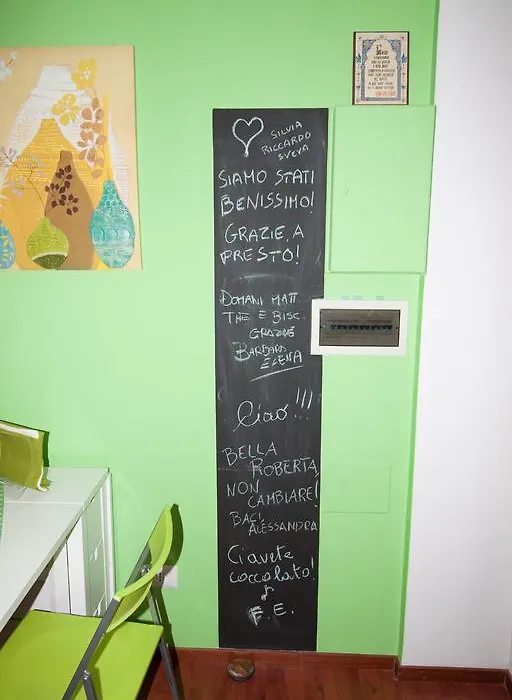 SILVIA
RICCARDO
SVEVA
SIAMO STATI
BENISSIMO!
GRAZIE, A
PRESTO!
DOMANI MATT
THE E BISC.
GRAZIE
BARBARA
ELENA
Ciao!!!
BELLA
ROBERTA,
NON
CAMBIARE!
BACI,
ALESSANDRA
Ci avete
coccolato!
F.E.